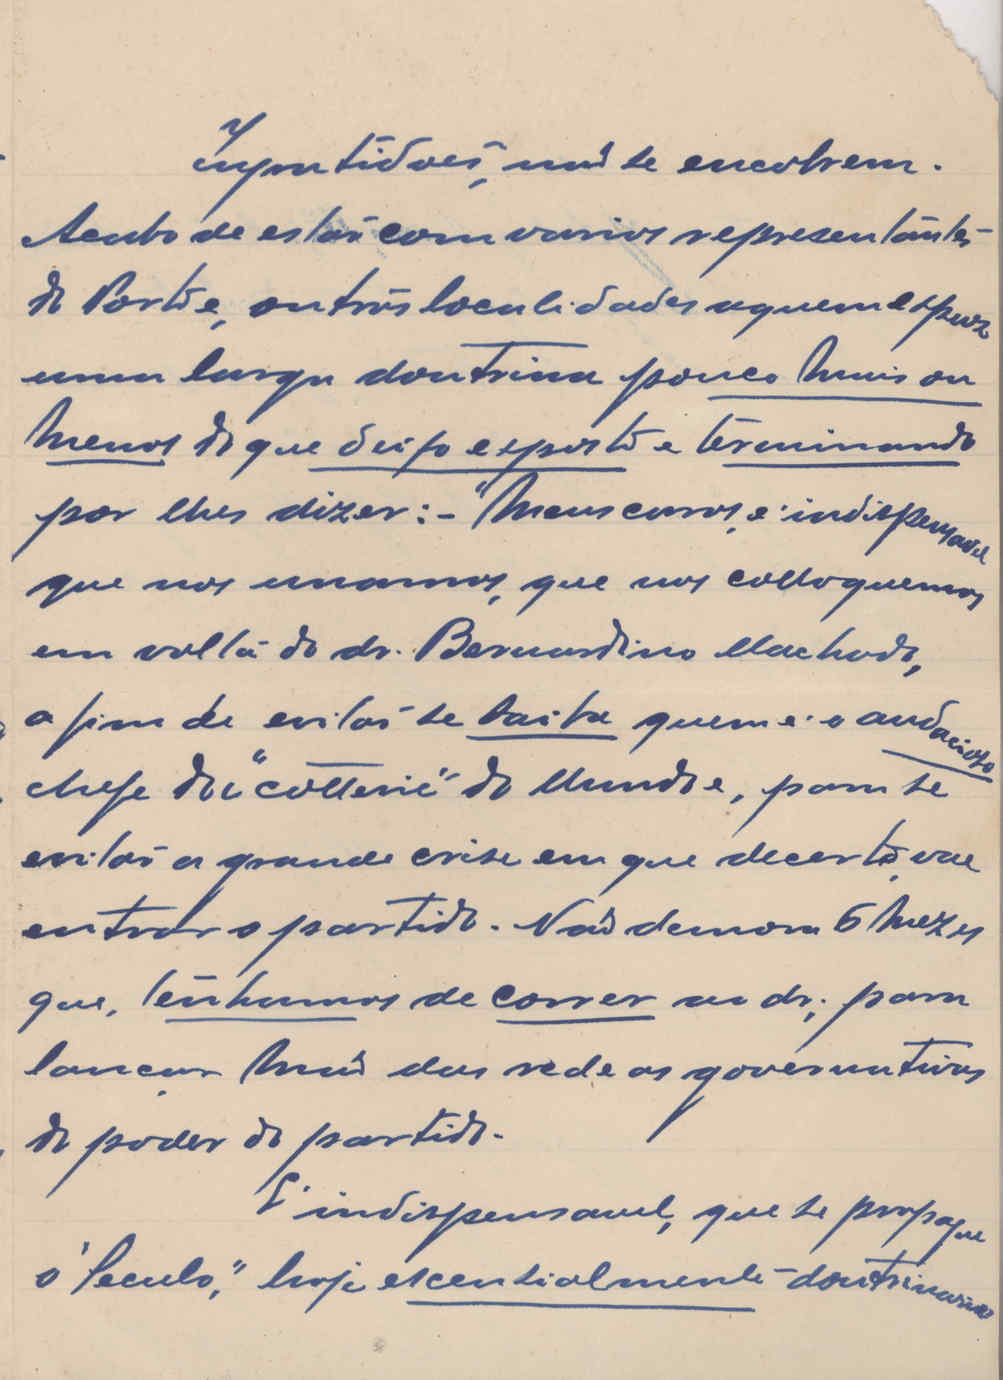 Ingratidões, não se encobrem.
Acabo de estar com varios representantes
do Porto e, outras localidades a quem expuz
uma larga doutrina pouco mais ou
menos do que deixo exposto e terminando
por lhes dizer: - "Meus caros, e' indispensavel
que nos unamos, que nos colloquemos
em volta do dr. Bernardino Machado,
a fim de evitar se saiba quem e' o audacioso
chefe da "cotterie" do Mundo e, para se
evitar a grande crise em que decerto, vae
entrar o partido. Não demora 6 mezes
que, tenhamos de correr ao dr; para
lançar mão das redeas governativas
do poder do partido.
E' indispensavel, que se propague
o "Seculo," hoje escencialmente doutrinario